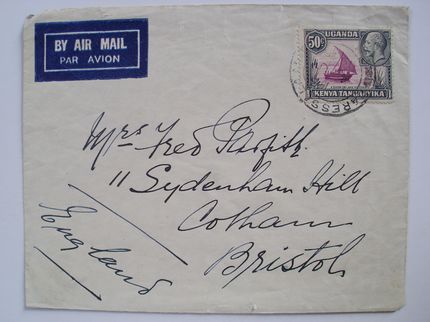 BY AIR MAIL
PAR AVION
UGANDA
50c
KENYA TANGANYIKA
Mrs Fred Parfitt
11 Sydenham Hill
Cotham
Bristol
England